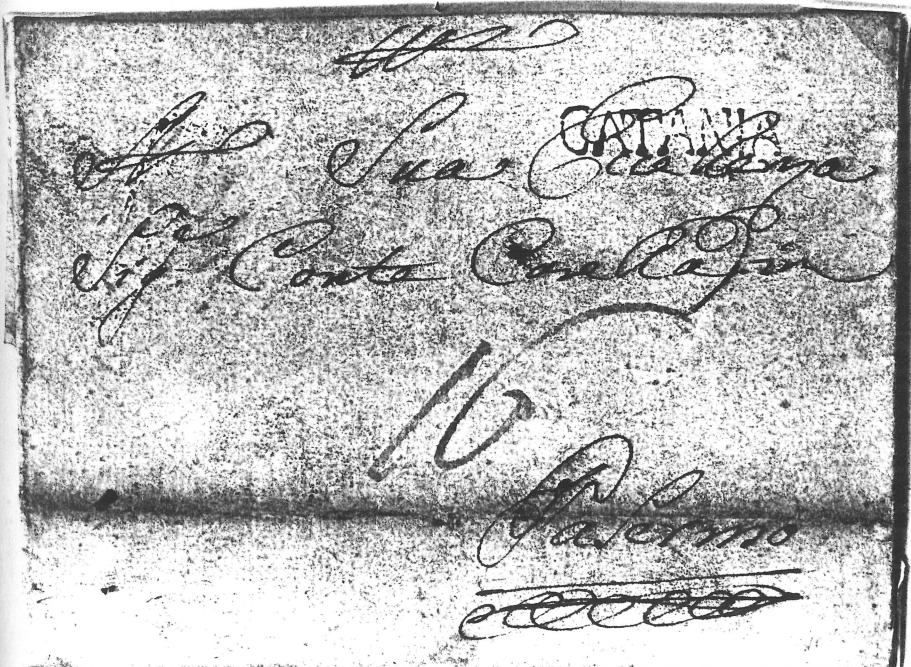 CATANIA
A Sua Eccellenza
Sig.re Conte
16
Palermo